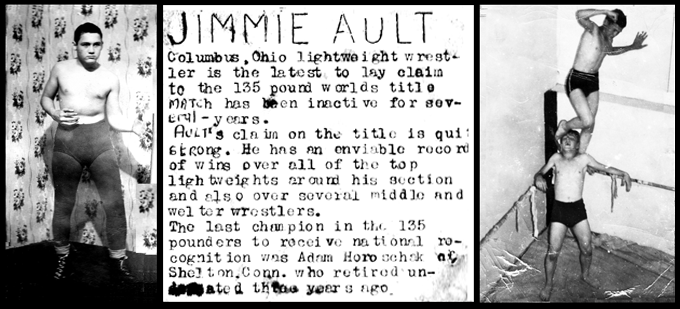 JIMMIE AULT
Columbus, Ohio lightweight wrest-
ler is the latest to lay claim
to the 135 pound worlds title
MATCH has been inactive for sev-
eral - years.
AULT's claim on the title is qui
strong. He has an enviable record
of wins over all of the top
lightweights around his section
and also over several middle and
welter wrestlers.
The last champion in the 135
pounders to receive national re-
cognition was Adam Horoschak of
Shelton, Conn. who retired un-
years ago.